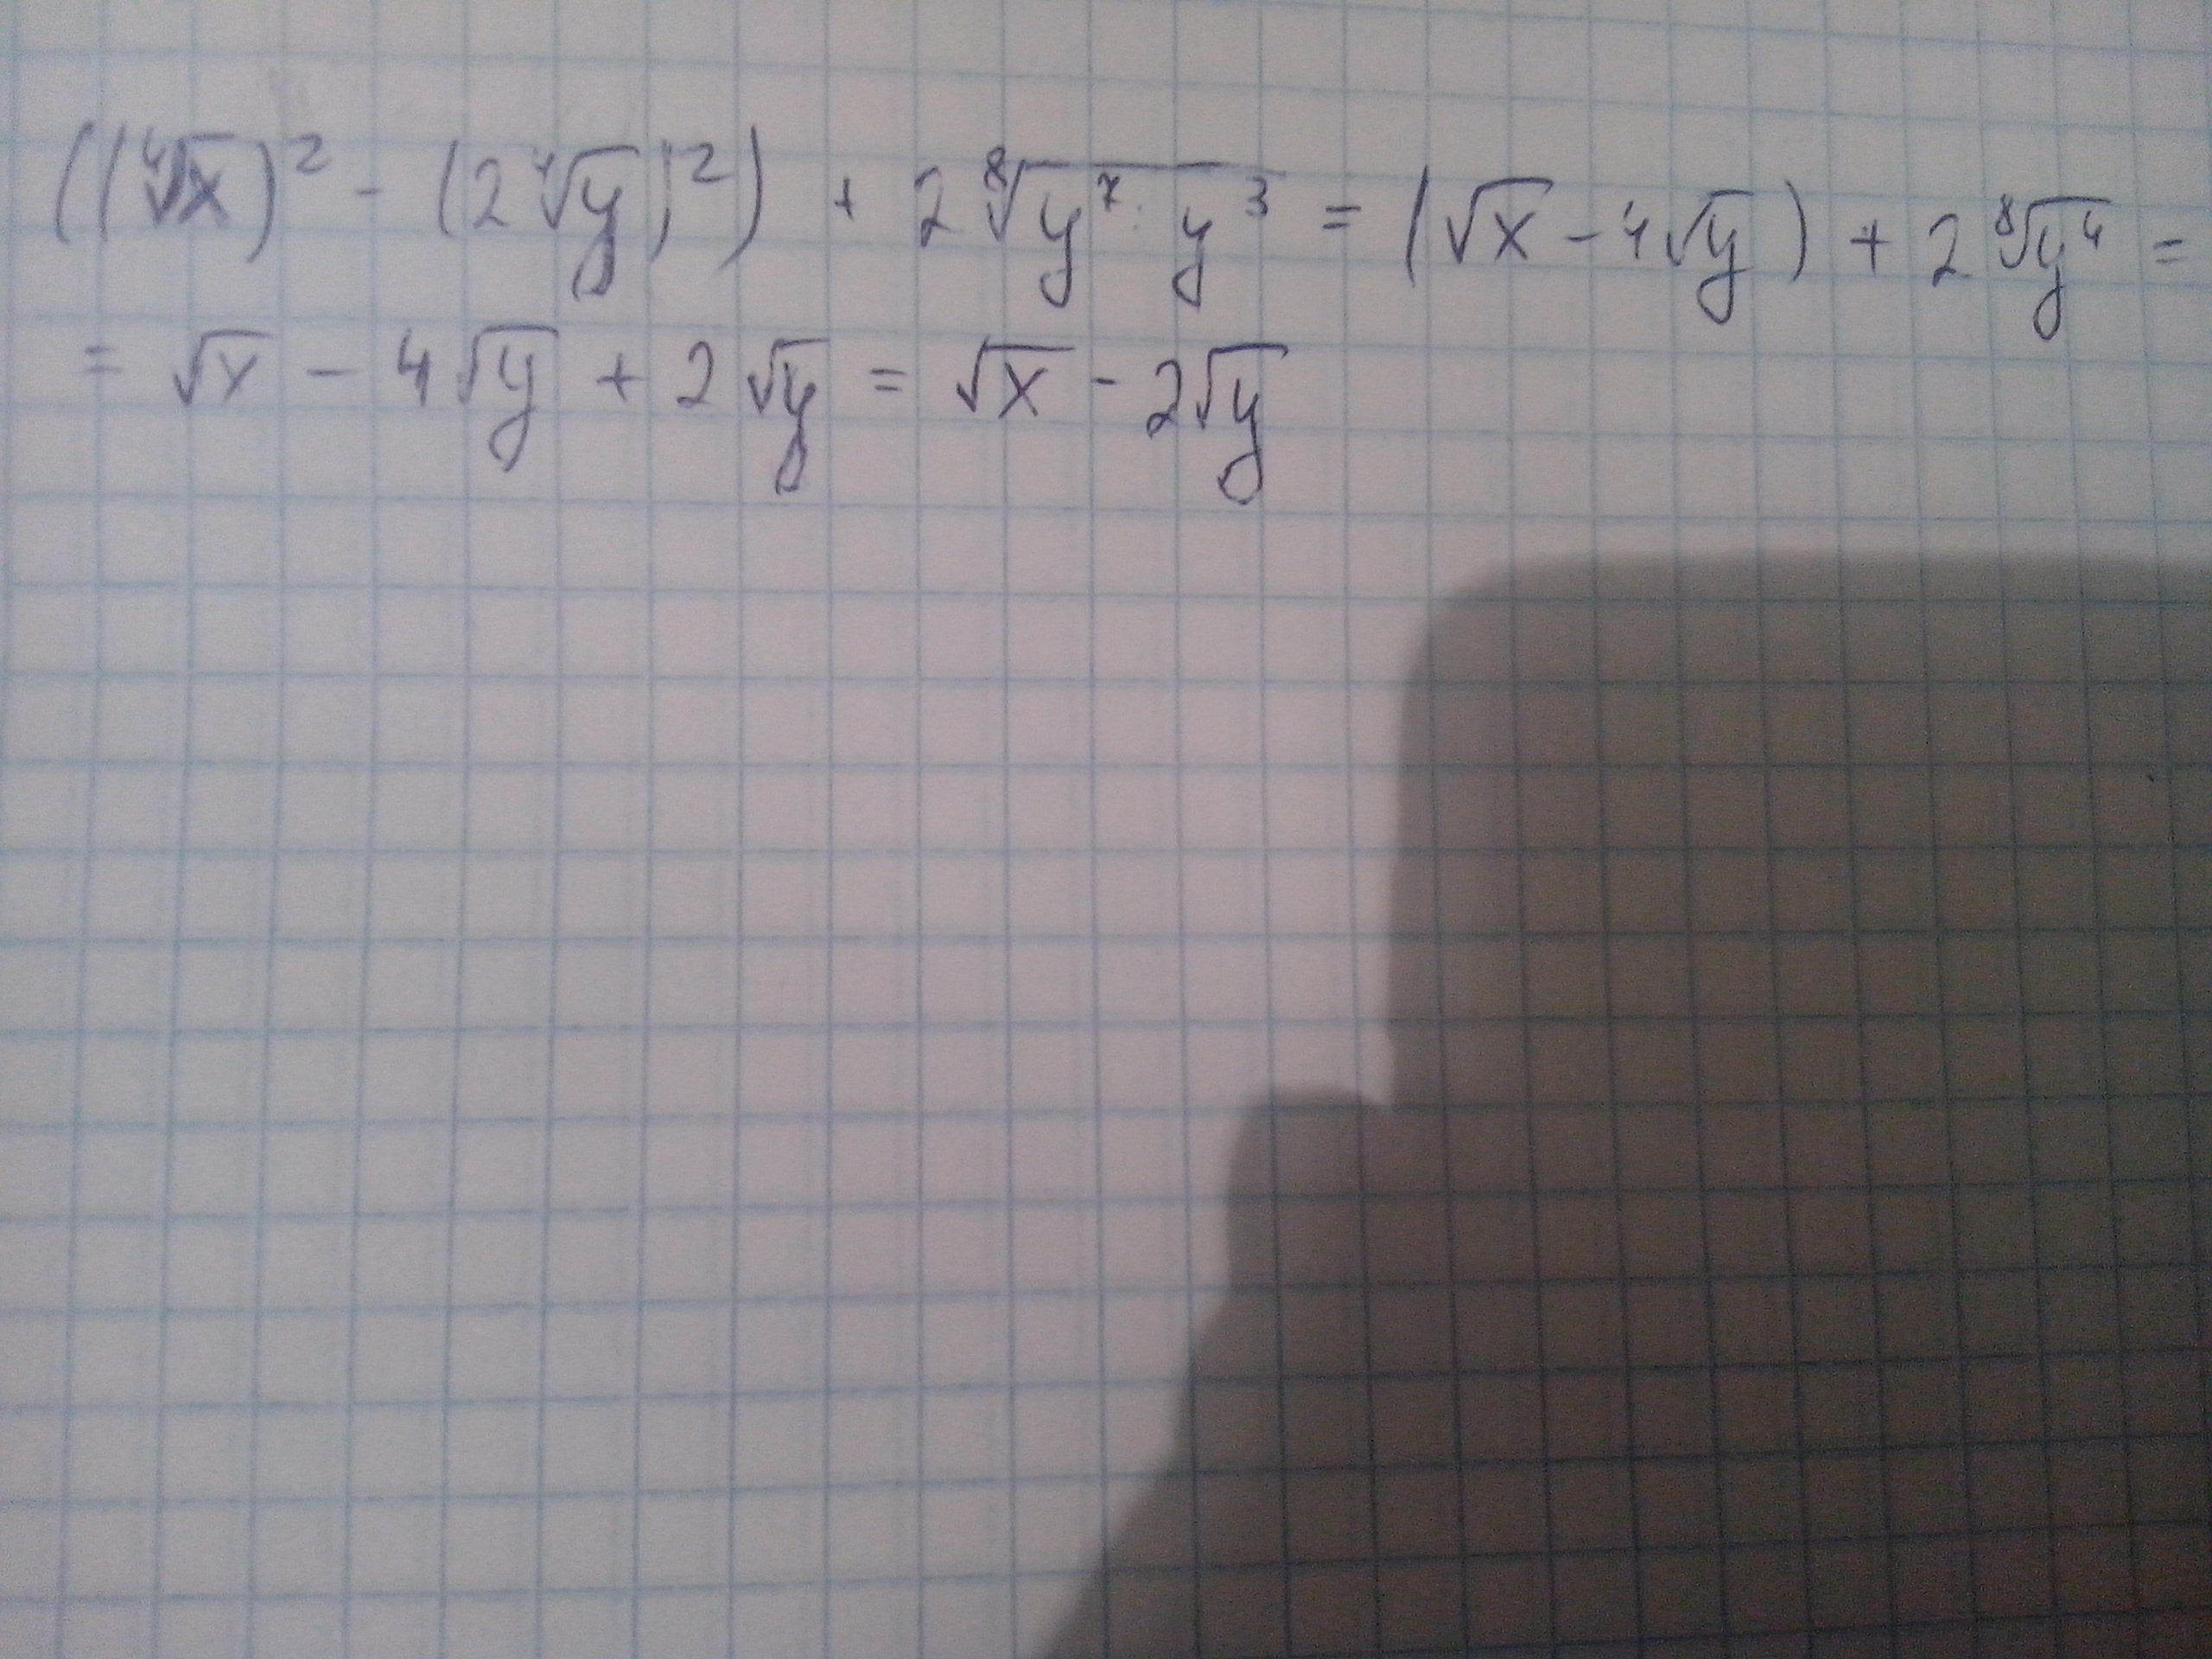 ((⁴√x)² - (2⁴√y)²) + 2⁸√(y⁷ : y³) = (√x - 4√y) + 2⁸√y⁴ =
= √x - 4√y + 2√y = √x - 2√y